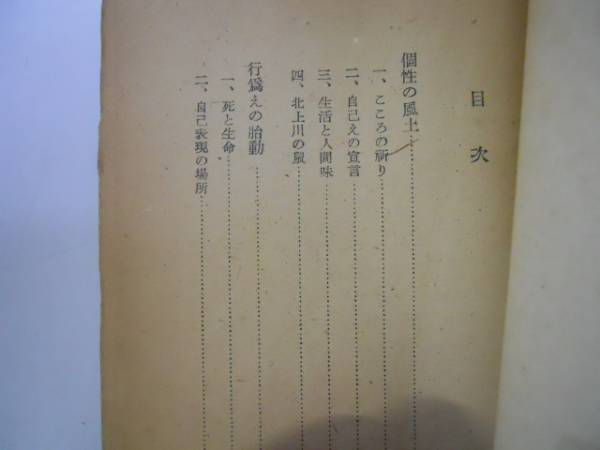 目次
個性の風土
一、こころの祈り
二、自己えの宣言
三、生活と人間味
四、北上川の鼠
行爲えの胎動
一、死と生命
二、自己表現の場所